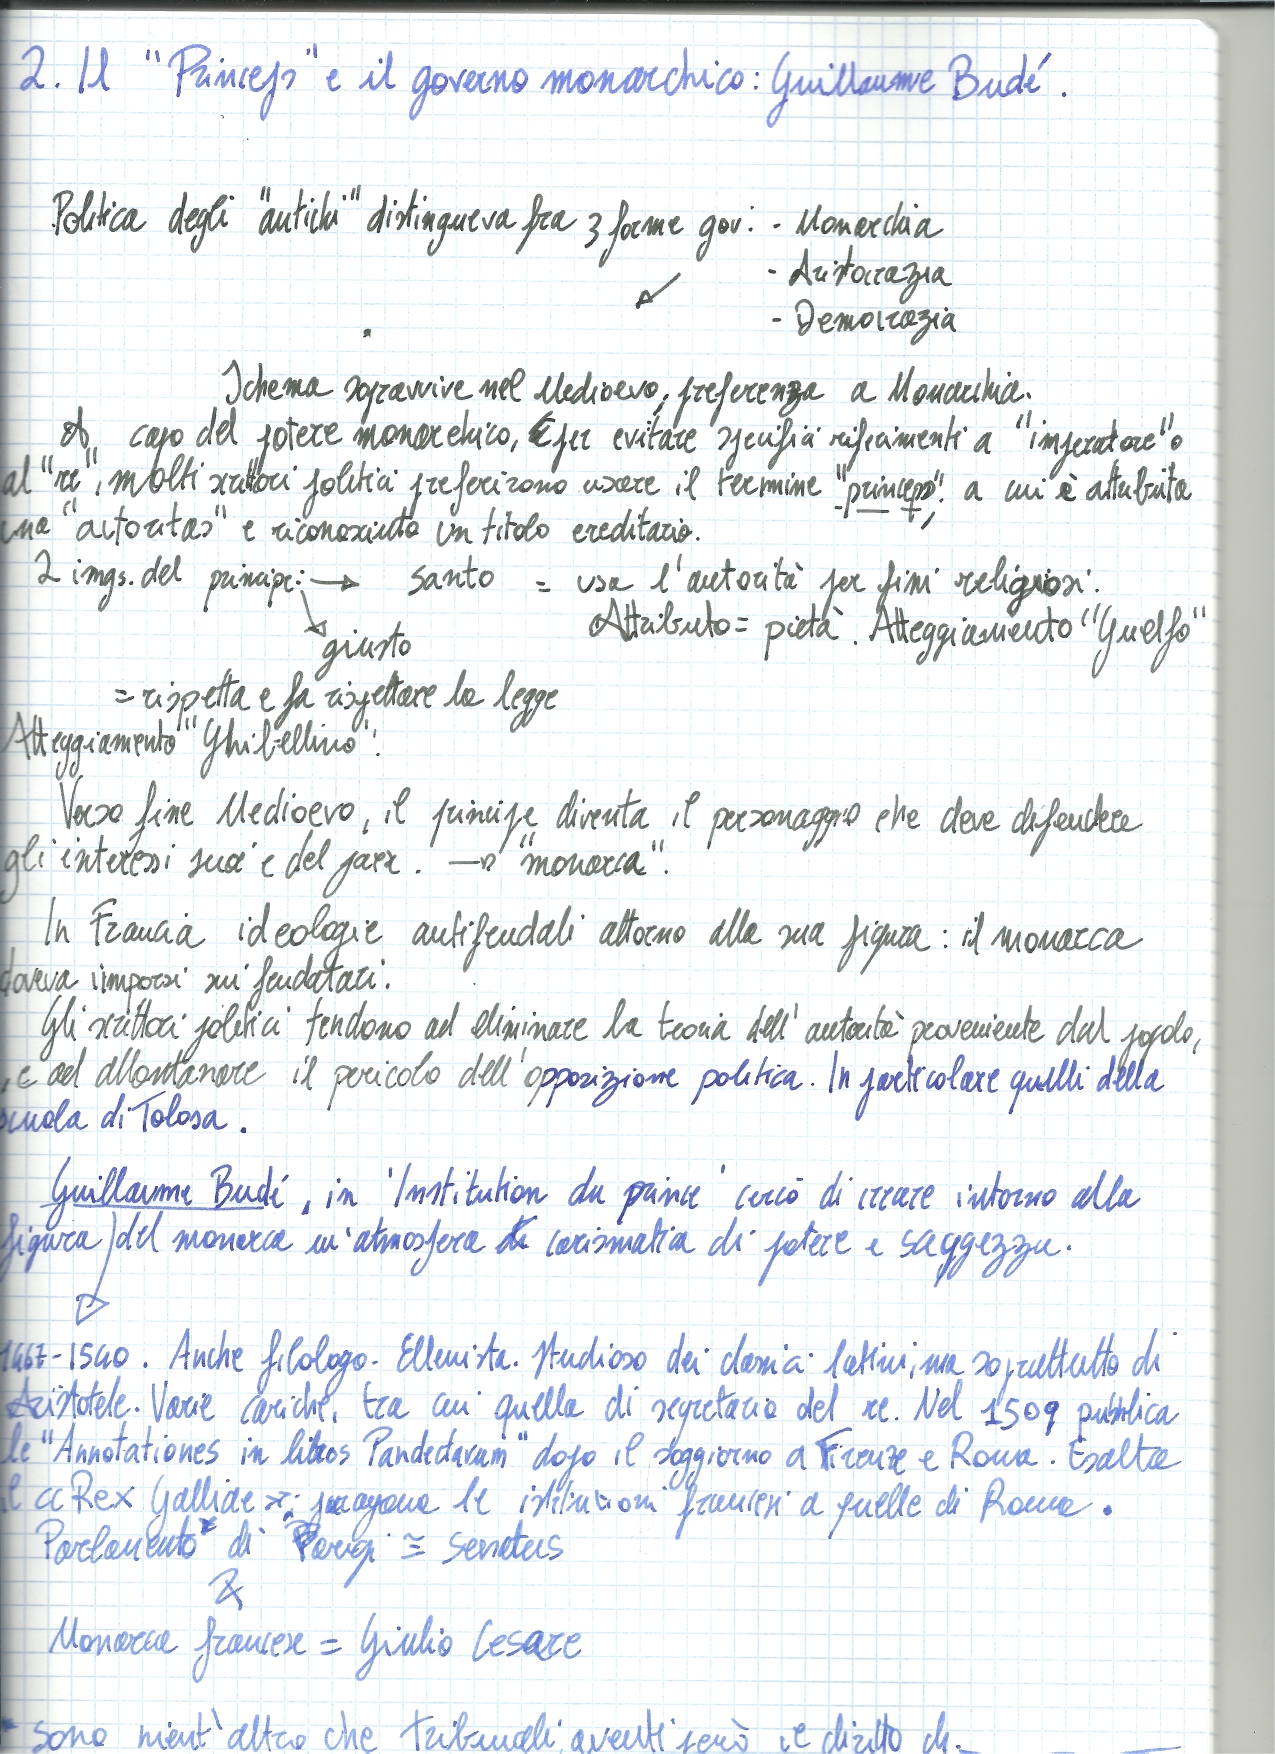 2. Il "Princeps" e il governo monarchico: Guillaume Budé.
Politica degli "antichi" distingueva fra 3 forme gov: - Monarchia
- Aristocrazia
- Democrazia
Schema sopravvive nel Medioevo, preferenza a Monarchia.
A capo del potere monarchico, per evitare specifici riferimenti a "imperatore" o
al "re", molti scrittori politici preferirono usare il termine "princeps", a cui è attribuita
una "autoritas" e riconosciuto un titolo ereditario.
2 imgs. del principe: → santo = usa l'autorità per fini religiosi.
Attributo = pietà. Atteggiamento "Guelfo"
giusto
= rispetta e fa rispettare la legge
Atteggiamento "Ghibellino".
Verso fine Medioevo, il principe diventa il personaggio che deve difendere
gli interessi suoi e del paese. → "monarca".
In Francia ideologie antifeudali attorno alla sua figura: il monarca
doveva imporsi sui feudatari.
Gli scrittori politici tendono ad eliminare la teoria dell'autorità proveniente dal popolo,
e ad allontanare il pericolo dell'opposizione politica. In particolare quelli della
scuola di Tolosa.
Guillaume Budé, in 'Institution du prince' cercò di creare intorno alla
figura del monarca un'atmosfera carismatica di potere e saggezza.
1467-1540. Anche filologo. Ellenista. Studioso dei classici latini, ma soprattutto di
Aristotele. Varie cariche, tra cui quella di segretario del re. Nel 1509 pubblica
le "Annotationes in libros Pandectarum" dopo il soggiorno a Firenze e Roma. Esalta
il «Rex Galliae»; paragona le istituzioni francesi a quelle di Roma.
Parlamento* di Parigi ≅ senatus
Monarca francese = Giulio Cesare
* sono nient'altro che tribunali, aventi però il diritto di